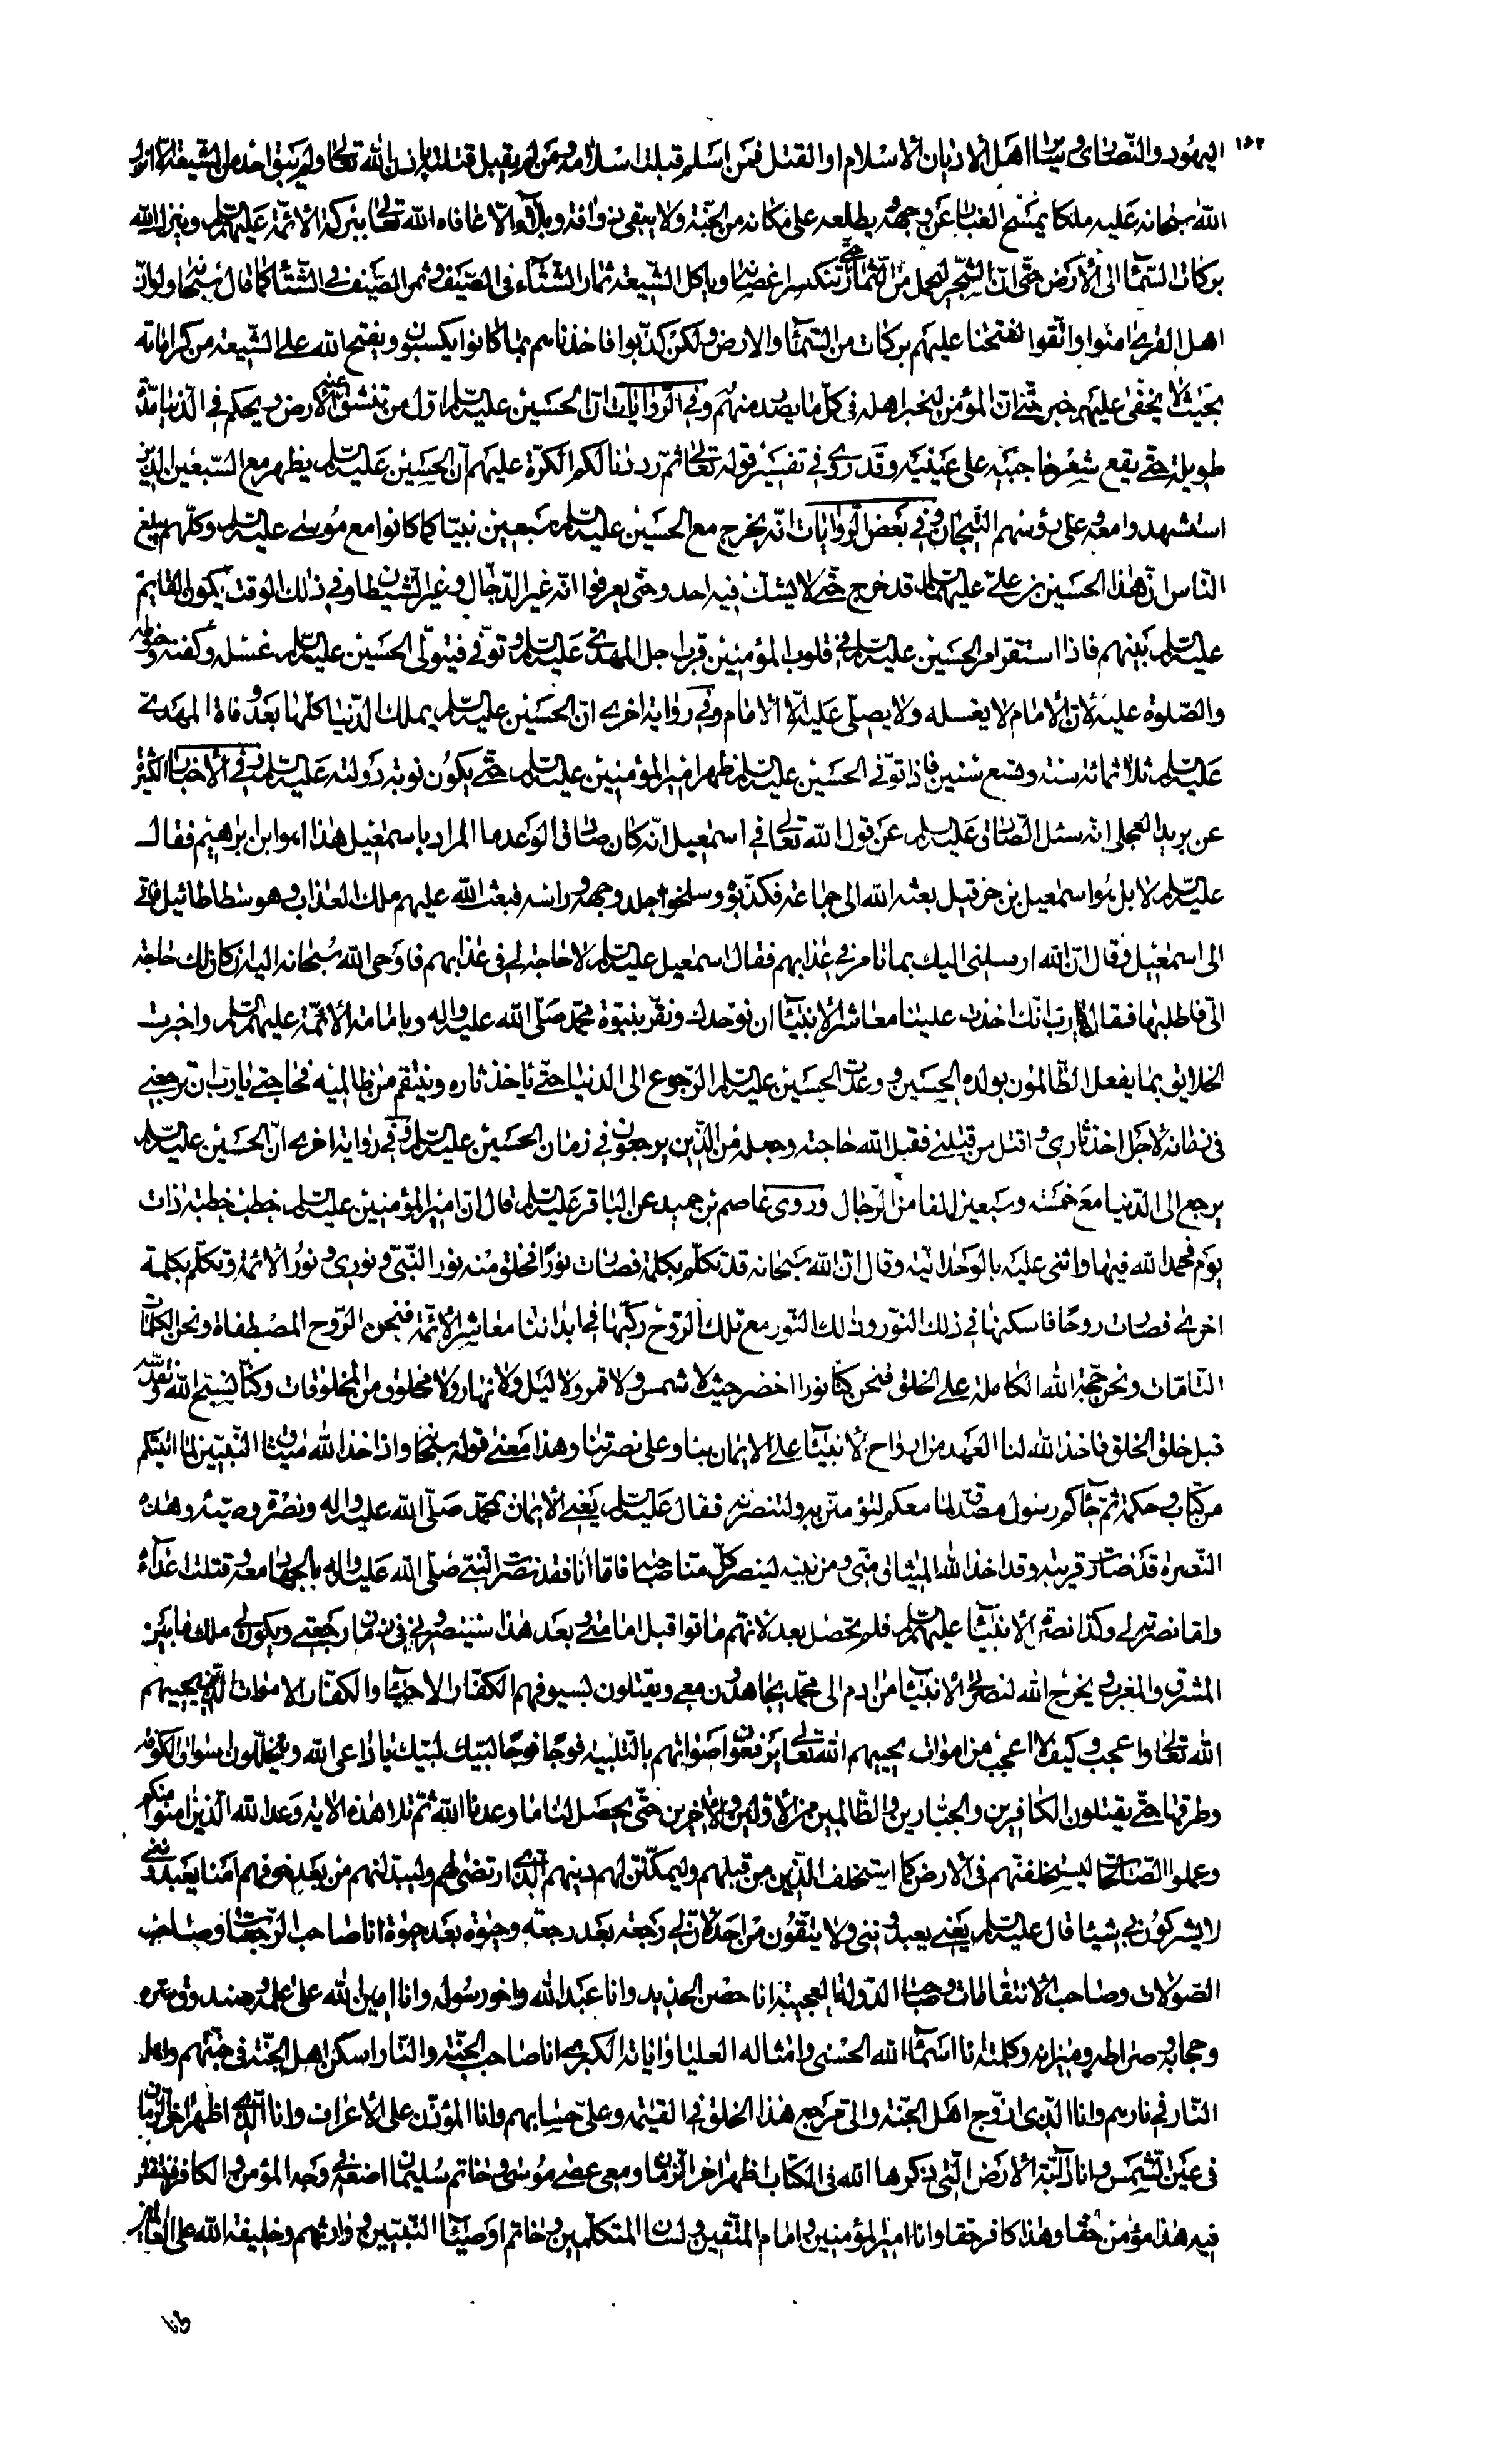 ١٥٢
اليهود والنصارى وسائر اهل الاديان الاسلام او القتل فمن اسلم قبلت اسلامه ومن لم يقبل قتلته باذن الله تعالى ولم يبق احد من الشيعة الا انزل
الله سبحانه عليه ملكا يمسح الغبار عن وجهه يطلعه على مكانه من الجنة ولا يبقى ذو افة وبلاء الا عافاه الله تعالى ببركة الائمة عليهم السلام وينزل الله
بركات السماء الى الارض حتى ان الشجر لتحمل من الثمار حتى تنكسر اغصانها وياكل الشيعة ثمار الشتاء فى الصيف وثمر الصيف فى الشتاء كما قال سبحانه ولو ان
اهل القرى امنوا واتقوا لفتحنا عليهم بركات من السماء والارض ولكن كذبوا فاخذناهم بما كانوا يكسبون ويفتح الله على الشيعة من كراماته
بحيث لا يخفى عليهم خبر حتى ان المؤمن ليخبر اهله فى كل ما يصدر منهم وفى الروايات ان الحسين عليه السلم اول من تنشق عنه الارض ويحكم فى الدنيا مدة
طويلة حتى يقع شعر حاجبيه على عينيه وقد روى فى تفسير قوله تعالى ثم رددنا لكم الكرة عليهم ان الحسين عليه السلم يظهر مع السبعين الذين
استشهدوا معه وعلى رؤسهم التيجان وفى بعض الروايات انه يخرج مع الحسين عليه السلم سبعين نبيا كما كانوا مع موسى عليه السلم وكلهم يبلغ
الناس ان هذا الحسين بن على عليهما السلم قد خرج حتى لا يشك فيه احد وحتى يعرفوا انه غير الدجال وغير الشيطان وفى ذلك الوقت يكون القايم
عليه السلم بينهم فاذا استقر امر الحسين عليه السلم فى قلوب المؤمنين قرب اجل المهدى عليه السلم وتوفى فيتولى الحسين عليه السلم غسله وكفنه وحنوطه
والصلوة عليه لان الامام لا يغسله ولا يصلى عليه الا الامام وفى رواية اخرى ان الحسين عليه السلم يملك الدنيا كلها بعد وفاة المهدى
عليه السلم ثلاثمائة سنة وتسع سنين فاذا توفى الحسين عليه السلم ظهر امير المؤمنين عليه السلم حتى يكون نوبة دولته عليه السلم وفى الاخبار الكثيرة
عن بريد العجلى انه سئل الصادق عليه السلم عن قول الله تعالى فى اسمعيل انه كان صادق الوعد ما المراد باسمعيل هذا اهو ابن ابرهيم فقال
عليه السلم لا بل هو اسمعيل بن حزقيل بعثه الله الى جماعته فكذبوه وسلخوا جلد وجهه وراسه فبعث الله عليهم ملك العذاب وهو سطاطائيل فاتى
الى اسمعيل وقال ان الله ارسلنى اليك بما تامر فى عذابهم فقال اسمعيل عليه السلم لا حاجة لى فى عذابهم فاوحى الله سبحانه اليه ان كان لك حاجة
الى فاطلبها فقال يا رب انك اخذت علينا معاشر الانبياء ان نوحدك ونقر بنبوة محمد صلى الله عليه واله وبامامة الائمة عليهم السلم واخبرت
الخلايق بما يفعل الظالمون بولده الحسين ووعدت الحسين عليه السلم الرجوع الى الدنيا حتى ياخذ ثاره وينتقم من ظالميه فحاجتى يا رب ان ترجعنى
فى زمانه لاجل اخذ ثارى واقتل من قتلنى فقبل الله حاجته وجعله من الذين يرجعون فى زمان الحسين عليه السلم وفى رواية اخرى ان الحسين عليه السلم
يرجع الى الدنيا مع خمسة وسبعين الفا من الرجال وروى عاصم بن حميد عن الباقر عليه السلم قال ان امير المؤمنين عليه السلم خطب خطبة ذات
يوم فحمد الله فيها واثنى عليه بالوحدانية وقال ان الله سبحانه قد تكلم بكلمة فصارت نورا فخلق منه نور النبى ونورى ونور الائمة وتكلم بكلمة
اخرى فصارت روحا فاسكنها فى ذلك النور وذلك النور مع تلك الروح ركبها فى ابداننا معاشر الائمة فنحن الروح المصطفاة ونحن الكلمات
التامات ونحن حجة الله الكاملة على الخلق فنحن كنا نورا اخضر حيث لا شمس ولا قمر ولا ليل ولا نهار ولا مخلوق من المخلوقات وكنا نسبح الله ونقدسه
قبل خلق الخلق فاخذ الله لنا العهد من ارواح الانبياء على الايمان بنا وعلى نصرتنا وهذا معنى قوله سبحانه واذ اخذ الله ميثاق النبيين لما اتيتكم
من كتاب وحكمة ثم جاءكم رسول مصدق لما معكم لتؤمنن به ولتنصرنه فقال عليه السلم يعنى الايمان بمحمد صلى الله عليه واله ونصرة وصيه وهذه
النصرة قد صارت قريبة وقد اخذ الله الميثاق منى ومن نبيه لينصر كل منا صاحبه فاما انا فقد نصرت النبى صلى الله عليه واله بالجهاد معه وقتلت اعداءه
واما نصرته لى وكذا نصرة الانبياء عليهم السلم فلم تحصل بعد لانهم ماتوا قبل امامتى وبعد هذا سينصرونى فى زمان رجعتى ويكون لى ملك ما بين
المشرق والمغرب ويخرج الله لنصرتى الانبياء من ادم الى محمد يجاهدون معى ويقتلون بسيوفهم الكفار الاحياء والكفار الاموات الذين يحييهم
الله تعالى واعجب وكيف لا اعجب من اموات يحييهم الله تعالى يرفعون اصواتهم بالتلبية فوجا فوجا لبيك لبيك يا داعى الله ويتخللون اسواق الكوفة
وطرقها حتى يقتلون الكافرين والجبارين والظالمين من الاولين والاخرين حتى يحصل لنا ما وعدنا الله ثم تلا هذه الاية وعد الله الذين امنوا منكم
وعملوا الصالحات ليستخلفنهم فى الارض كما استخلف الذين من قبلهم وليمكنن لهم دينهم الذى ارتضى لهم وليبدلنهم من بعد خوفهم امنا يعبدوننى
لا يشركون بى شيئا قال عليه السلم يعنى يعبدوننى ولا يتقون من احد لان لى رجعة بعد رجعة وحيوة بعد حيوة انا صاحب الرجعات وصاحب
الصولات وصاحب الانتقامات وصاحب الدولة العجيبة انا حصن الحديد وانا عبد الله واخو رسوله وانا امين الله على علمه وصندوق سره
وحجابه وصراطه وميزانه وكلمته انا اسماء الله الحسنى وامثاله العليا واياته الكبرى انا صاحب الجنة والنار اسكن اهل الجنة فى جنتهم واهل
النار فى نارهم وانا الذى ازوج اهل الجنة والى مرجع هذا الخلق فى القيمة وعلى حسابهم وانا المؤذن على الاعراف وانا الذى اظهر اخر الزمان
فى عين الشمس وانا دابة الارض التى ذكرها الله فى الكتاب اظهر اخر الزمان ومعى عصى موسى وخاتم سليمان اضعه فى وجه المؤمن والكافر فتنقش
فيه هذا مؤمن حقا وهذا كافر حقا وانا امير المؤمنين وامام المتقين ولسان المتكلمين وخاتم اوصياء النبيين ووارثهم وخليفة الله على العالمين